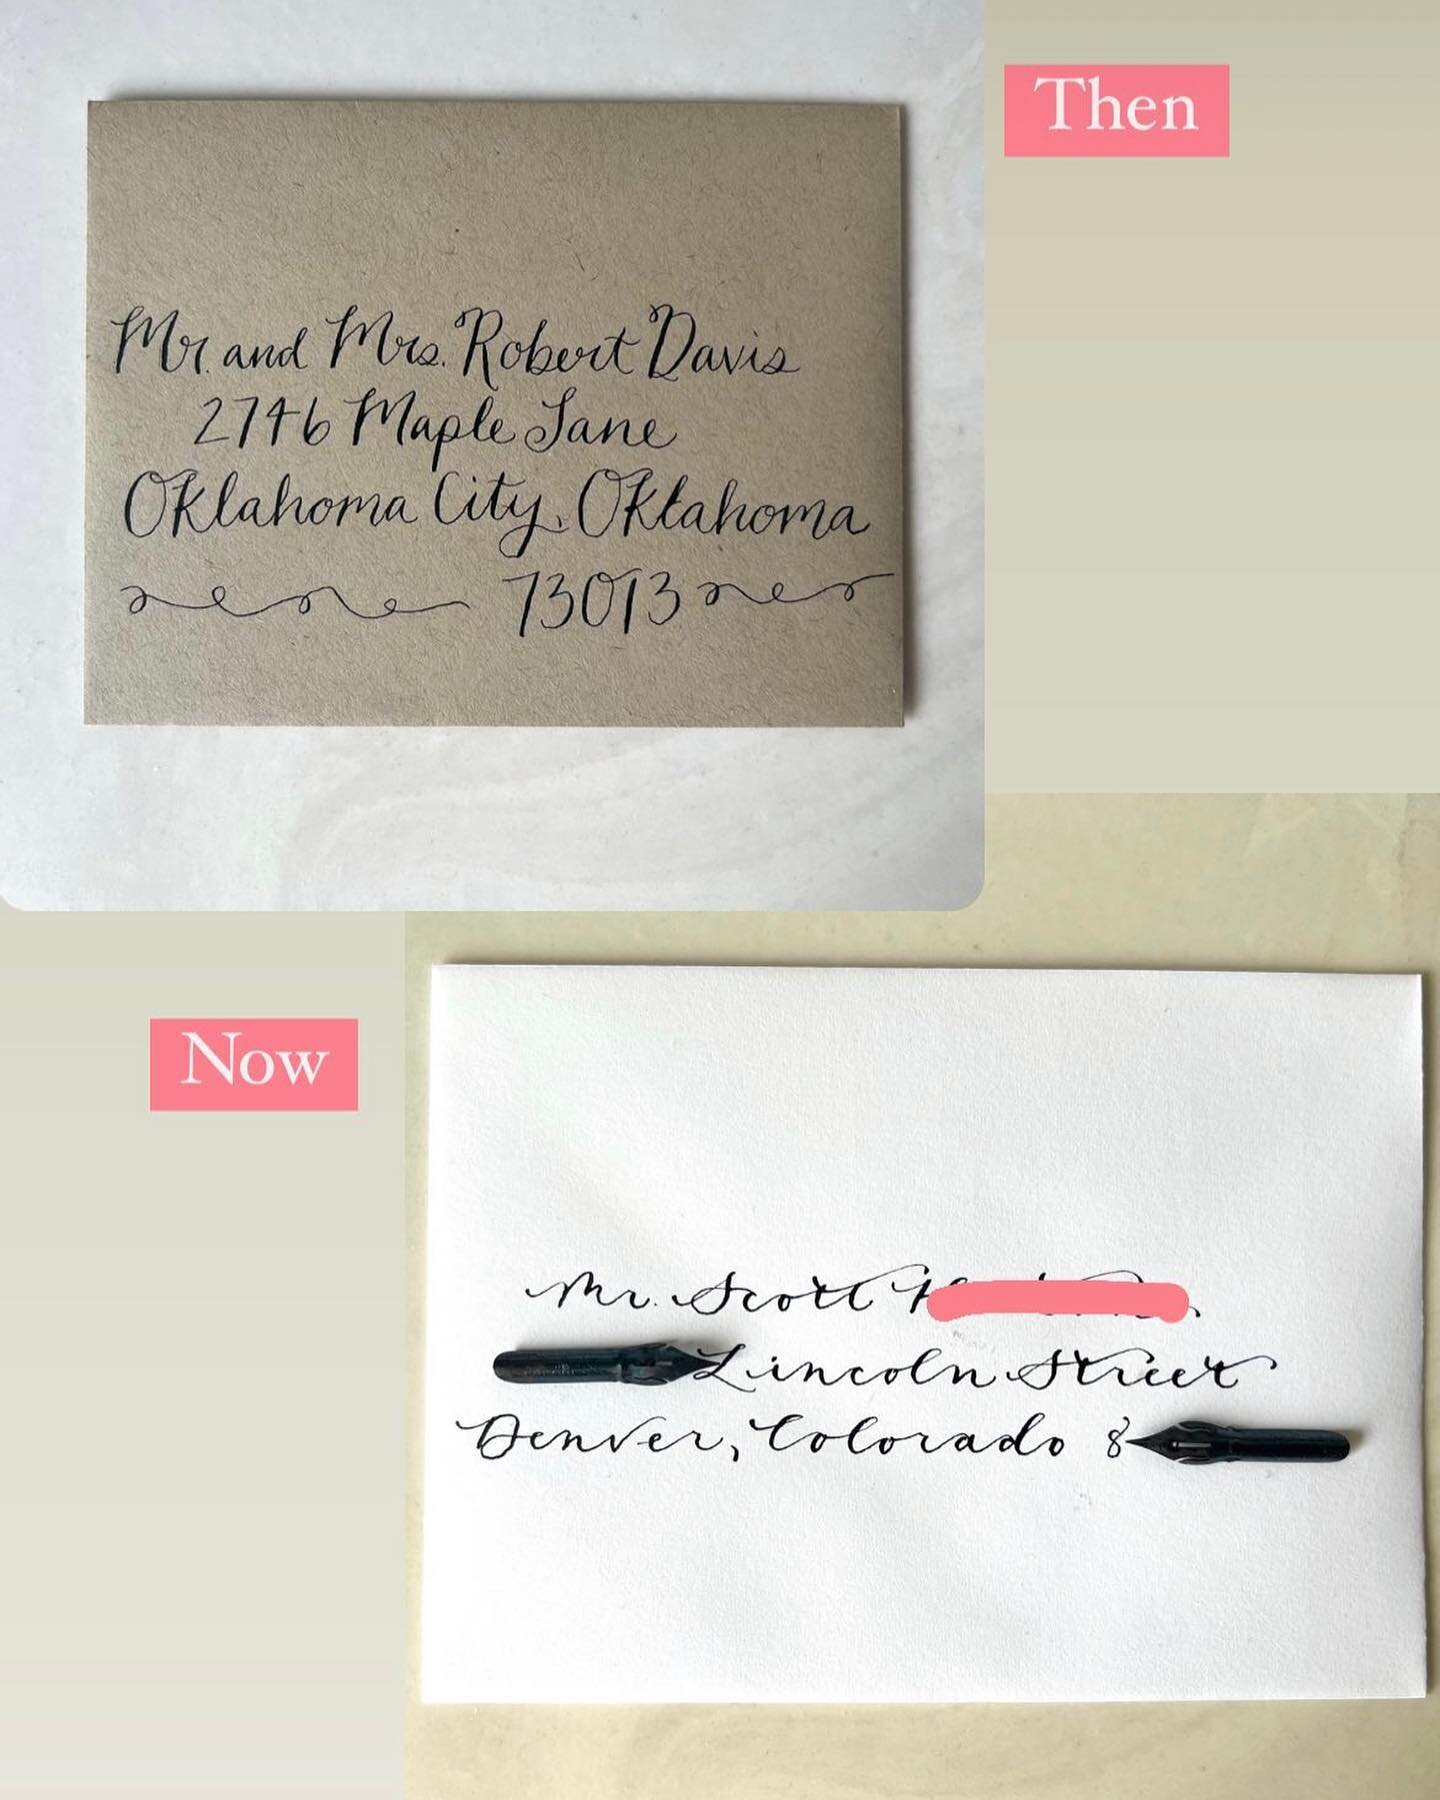 Then
Mr. and Mrs. Robert Davis
2746 Maple Lane
Oklahoma City, Oklahoma
73013
Now
Mr. Scott
Lincoln Street
Denver, Colorado 8